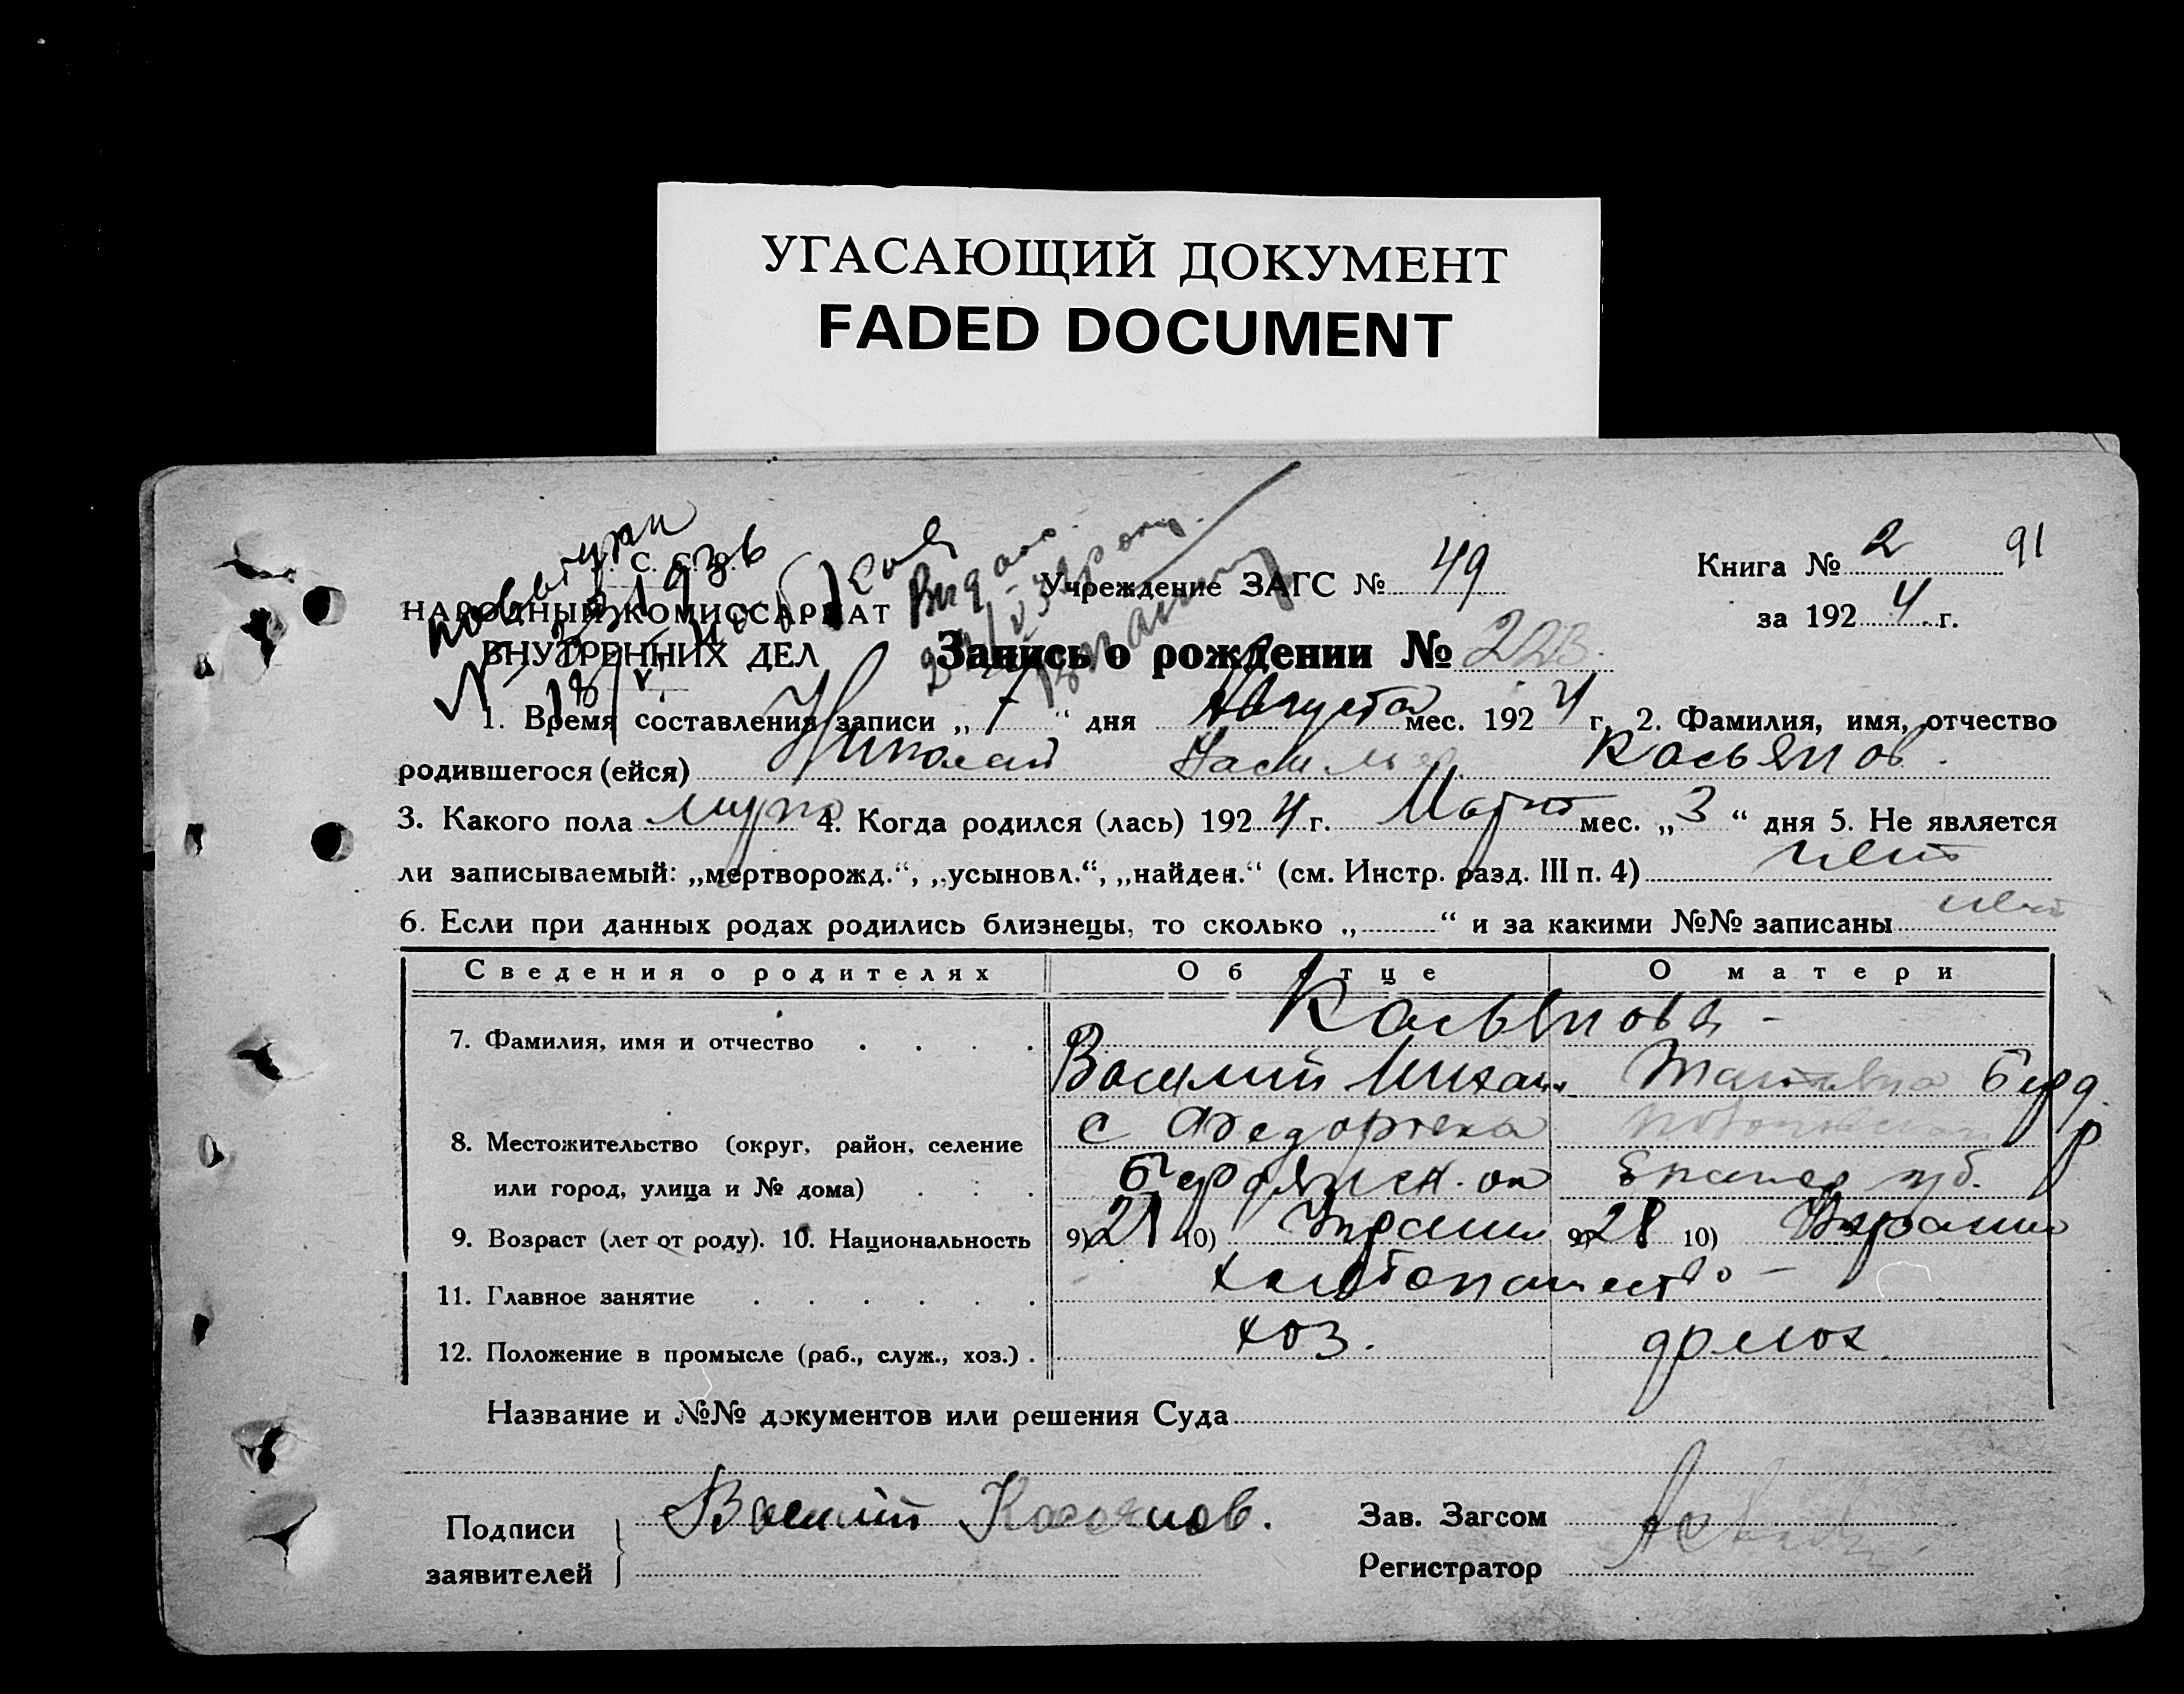 УГАСАЮЩИЙ ДОКУМЕНТ
FADED DOCUMENT
У. С. С. Р.
НАРОДНЫЙ КОМИССАРИАТ
ВНУТРЕННИХ ДЕЛ
Учреждение ЗАГС № 49
Книга № 2 91
за 1924 г.
Запись о рождении № 223
1. Время составления записи „ 7 “ дня Августа мес. 1924 г. 2. Фамилия, имя, отчество
родившегося (ейся) Николай Касьянов
3. Какого пола муж 4. Когда родился (лась) 1924 г. Март мес. „ 3 “ дня 5. Не является
ли записываемый: „мертворожд.“, „усыновл.“, „найден.“ (см. Инстр. разд. III п. 4) нет
6. Если при данных родах родились близнецы, то сколько „ “ и за какими №№ записаны нет
Сведения о родителях Об отце О матери
7. Фамилия, имя и отчество Касьянова -
Василий Михаил
8. Местожительство (округ, район, селение с Федоровка
или город, улица и № дома) Бердянск. ок губ.
9. Возраст (лет от роду). 10. Национальность 9) 21 10) Украин 9) 28 10) Украин
11. Главное занятие хлебопашество -
12. Положение в промысле (раб., служ., хоз.) хоз.
Название и №№ документов или решения Суда
Подписи
заявителей
Василий Касянов.
Зав. Загсом
Регистратор